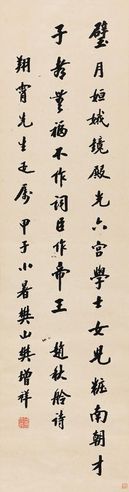 璧月姮娥鏡殿光六宮學士女兒粧南朝才
子都無福不作詞臣作帝王 趙秋舲詩
翔霄先生正屬 甲子小暑樊山樊增祥